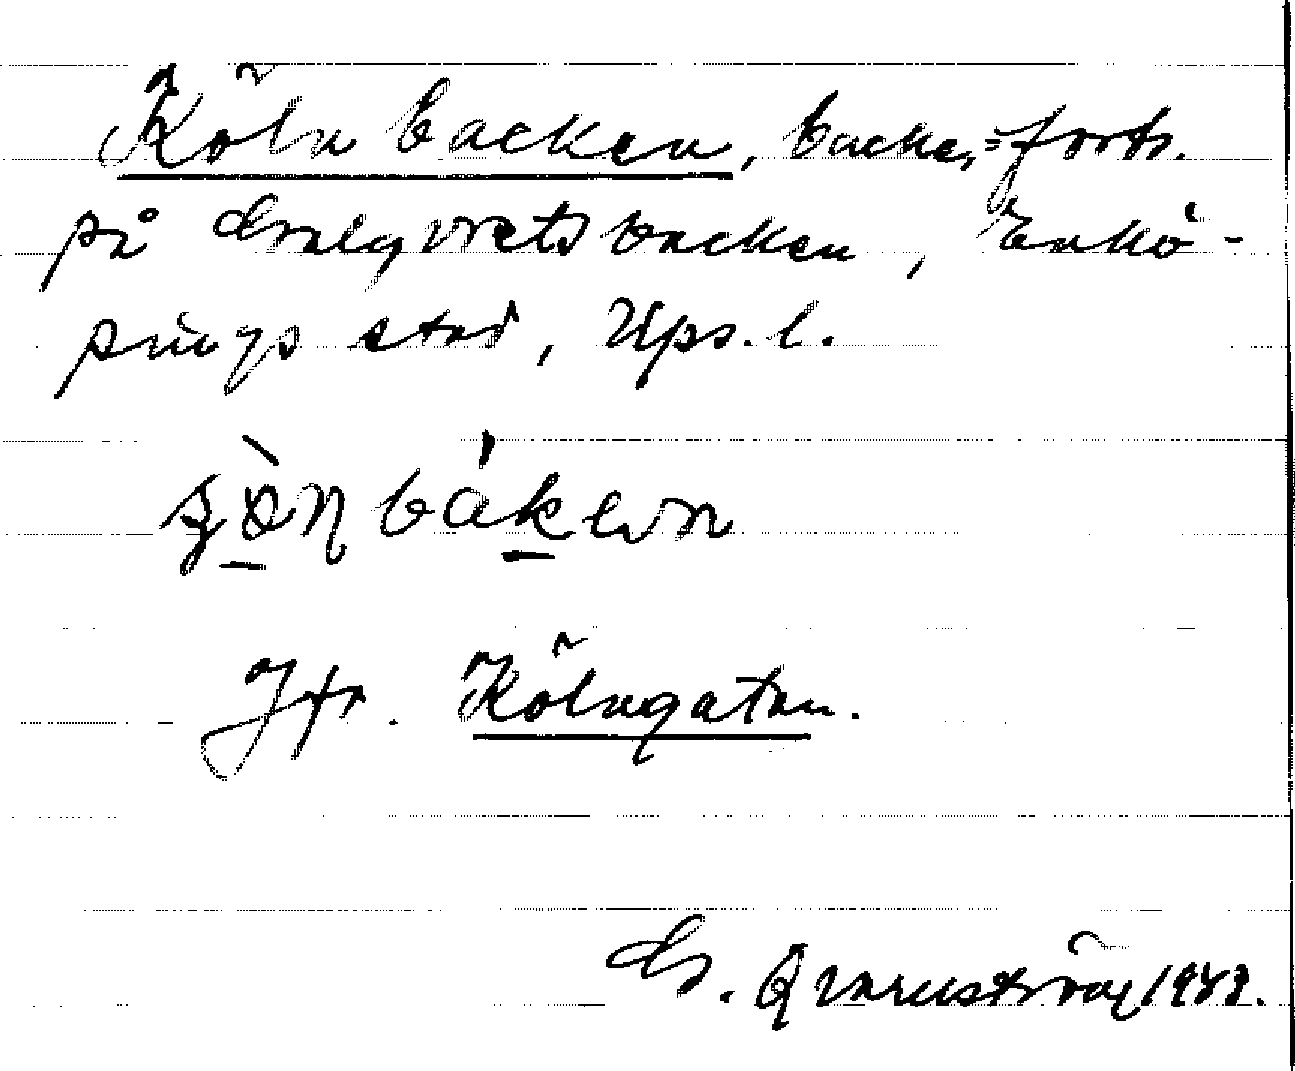 Kölnbacken, backe, = forts.
på Galgvretsbacken, Enkö-
pings stad, Ups. l.
Jfr. Kölngatan.
G. Qvarnström 1942.